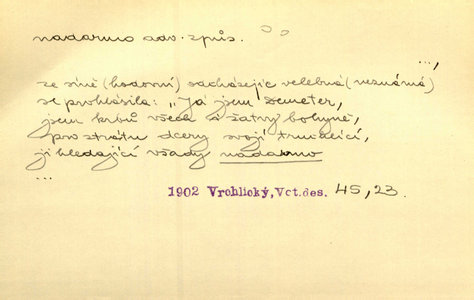 nadarmo adv. způs.
...,
ze síně (hodovní) odcházejíc velebná (neznámá)
se prohlásila: „Já jsem Demeter,
jsem krbů všech i žatvy bohyně,
pro ztrátu dcery svojí truchlící,
ji hledající všady nadarmo
...
1902 Vrchlický, Vct.des. 45, 23.